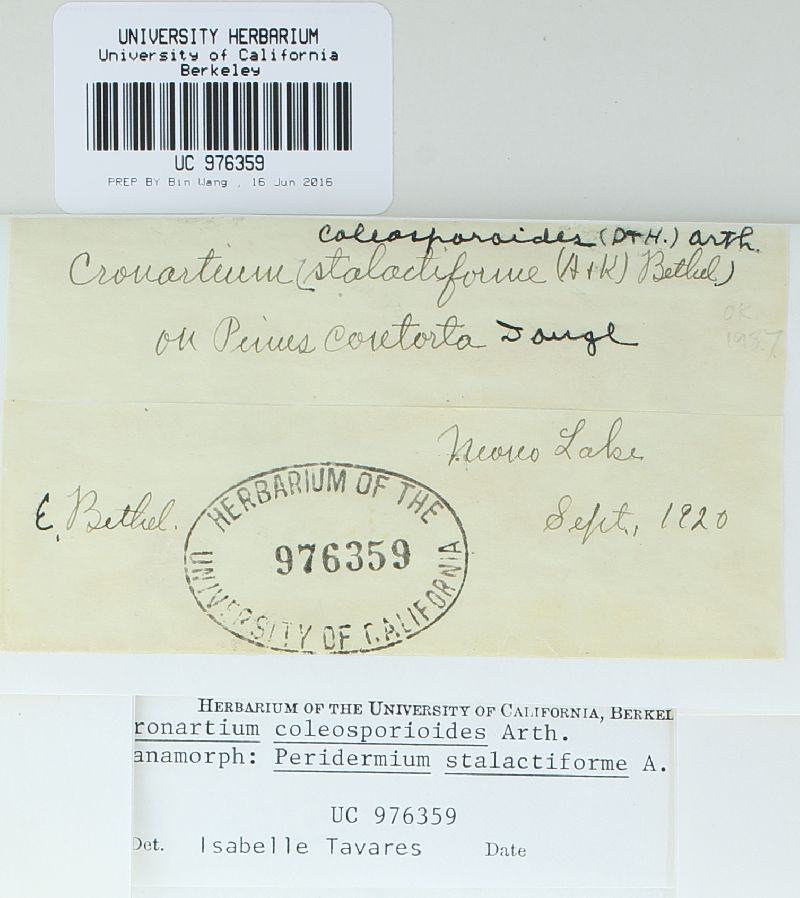 UNIVERSITY HERBARIUM
University of California
Berkeley
UC 976359
PREP BY Bin Wang , 16 Jun 2016
coleosporoides (D+H.) Arth.
Cronartium (stalactiforme (A+K) Bethel)
on Pinus contorta Dougl
OK
1987
Mono Lake
E. Bethel.
Sept., 1920
HERBARIUM OF THE
976359
UNIVERSITY OF CALIFORNIA
HERBARIUM OF THE UNIVERSITY OF CALIFORNIA, BERKEL
ronartium coleosporioides Arth.
anamorph: Peridermium stalactiforme A.
UC 976359
Det. Isabelle Tavares Date